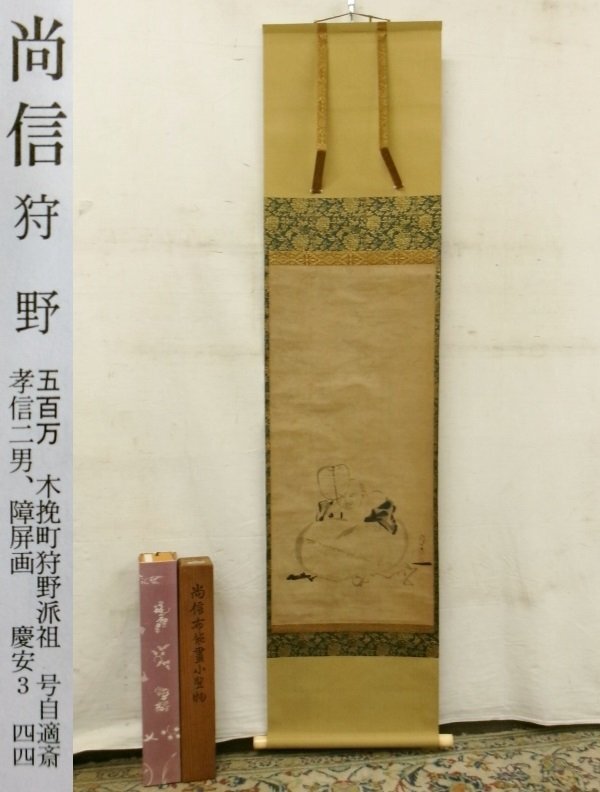 尚信
狩野
五百万 木挽町狩野派祖 号自適斎
孝信二男、障屏画 慶安3 四四
尚信布袋畫小堅物